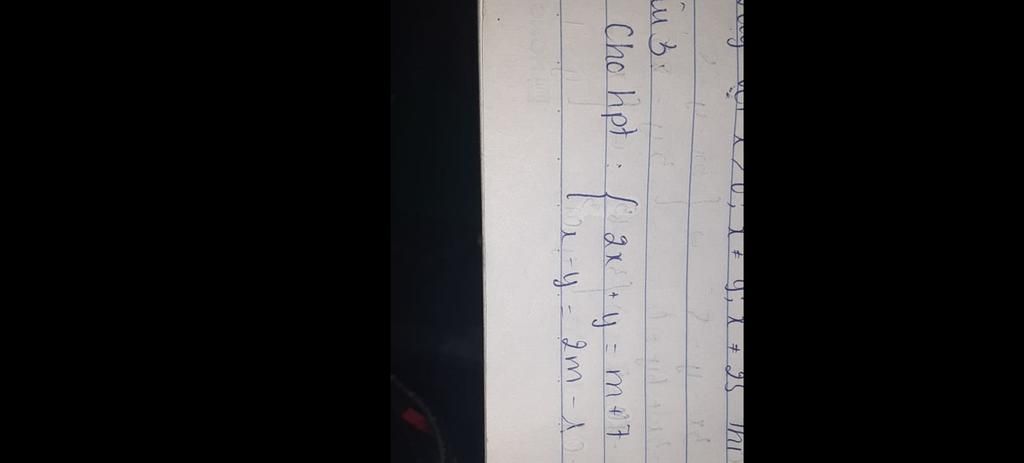 x > 0; x ≠ 9; x ≠ 25 thì
Bài 3:
Cho hpt: { 2x + y = m + 7
x - y = 2m - 1